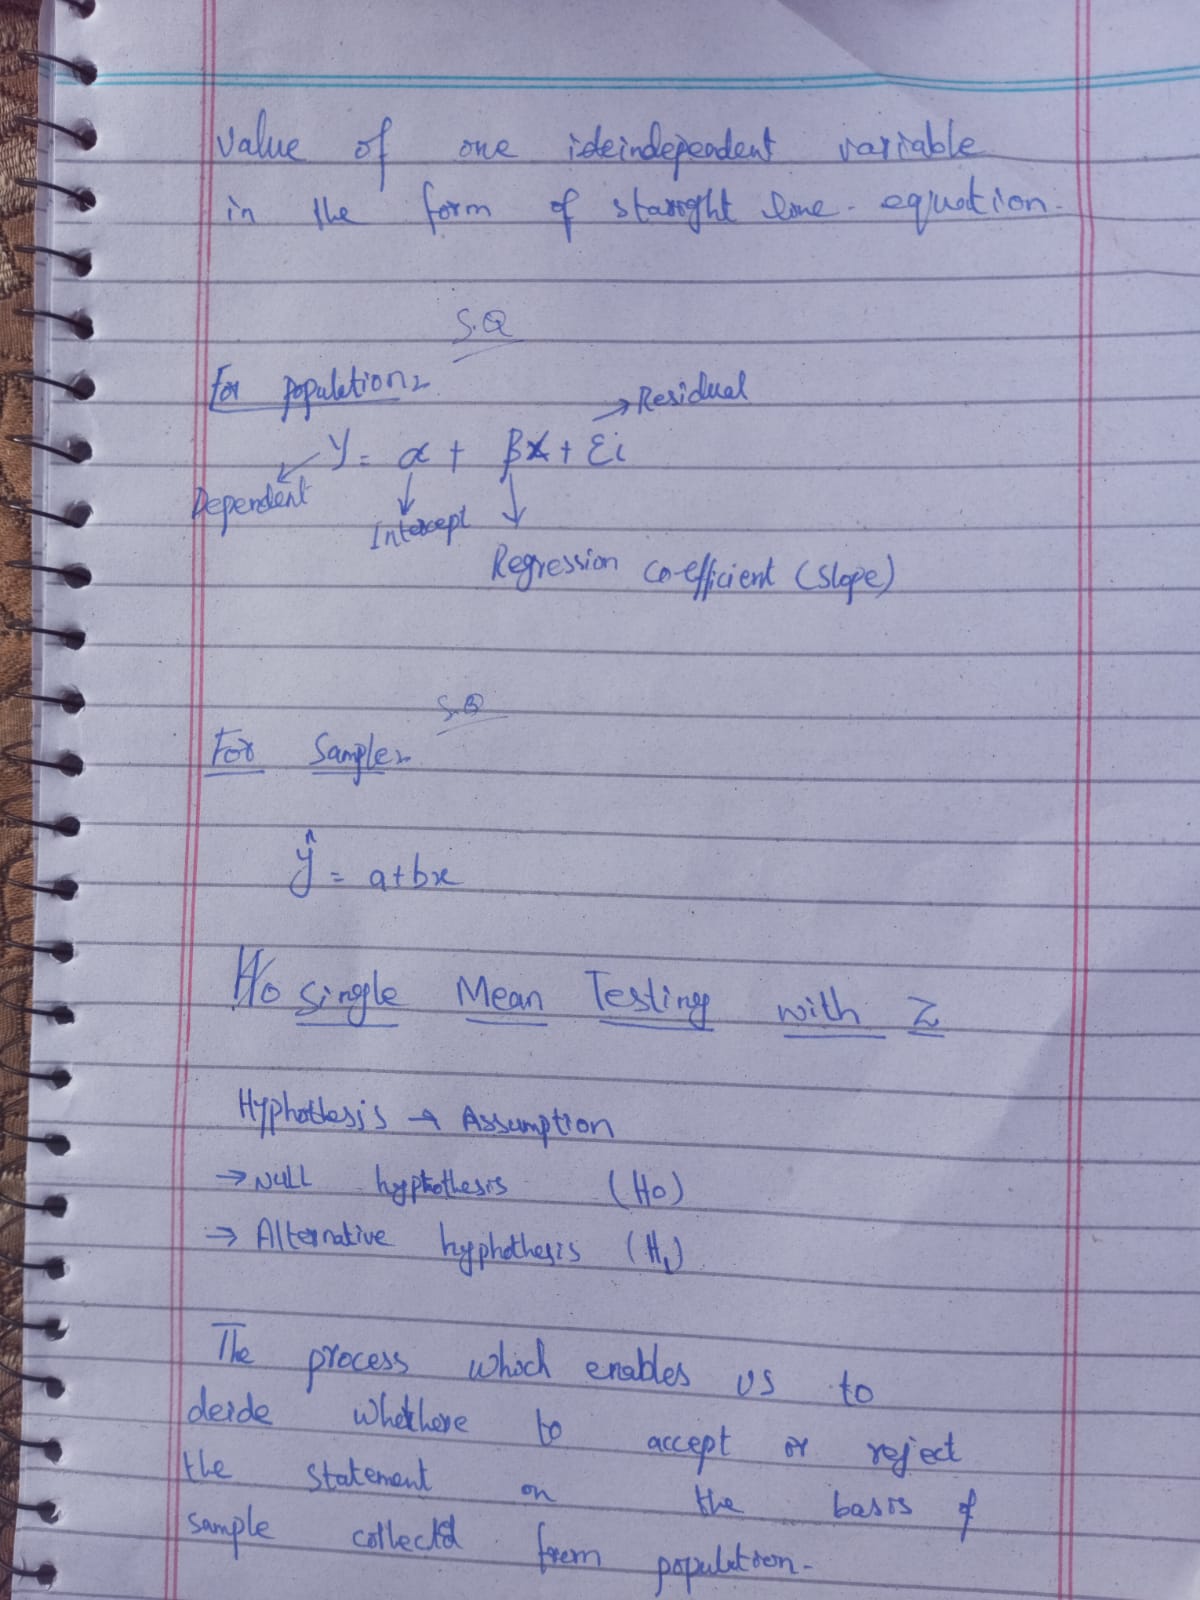 value of one ideindependent variable
in the form of staright line. equation.
S.Q
For population
→ Residual
Y = α + βX + Ɛi
Dependent
Intercept
Regression co-efficient (slope)
S.Q
For Sample
ŷ = a+bx
Ho Single Mean Testing with Z
Hyphothesis → Assumption
→ NULL hypthothesis (H0)
→ Alternative hyphothesis (H1)
The process which enables us to
deide whethere to accept or reject
the statement on the basis of
sample collectd from population.